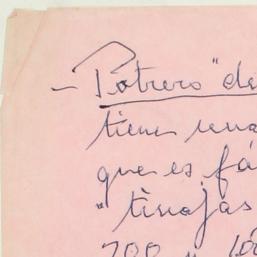 - Potrero "de
tiene una
que es fá
"tinajas
200 u